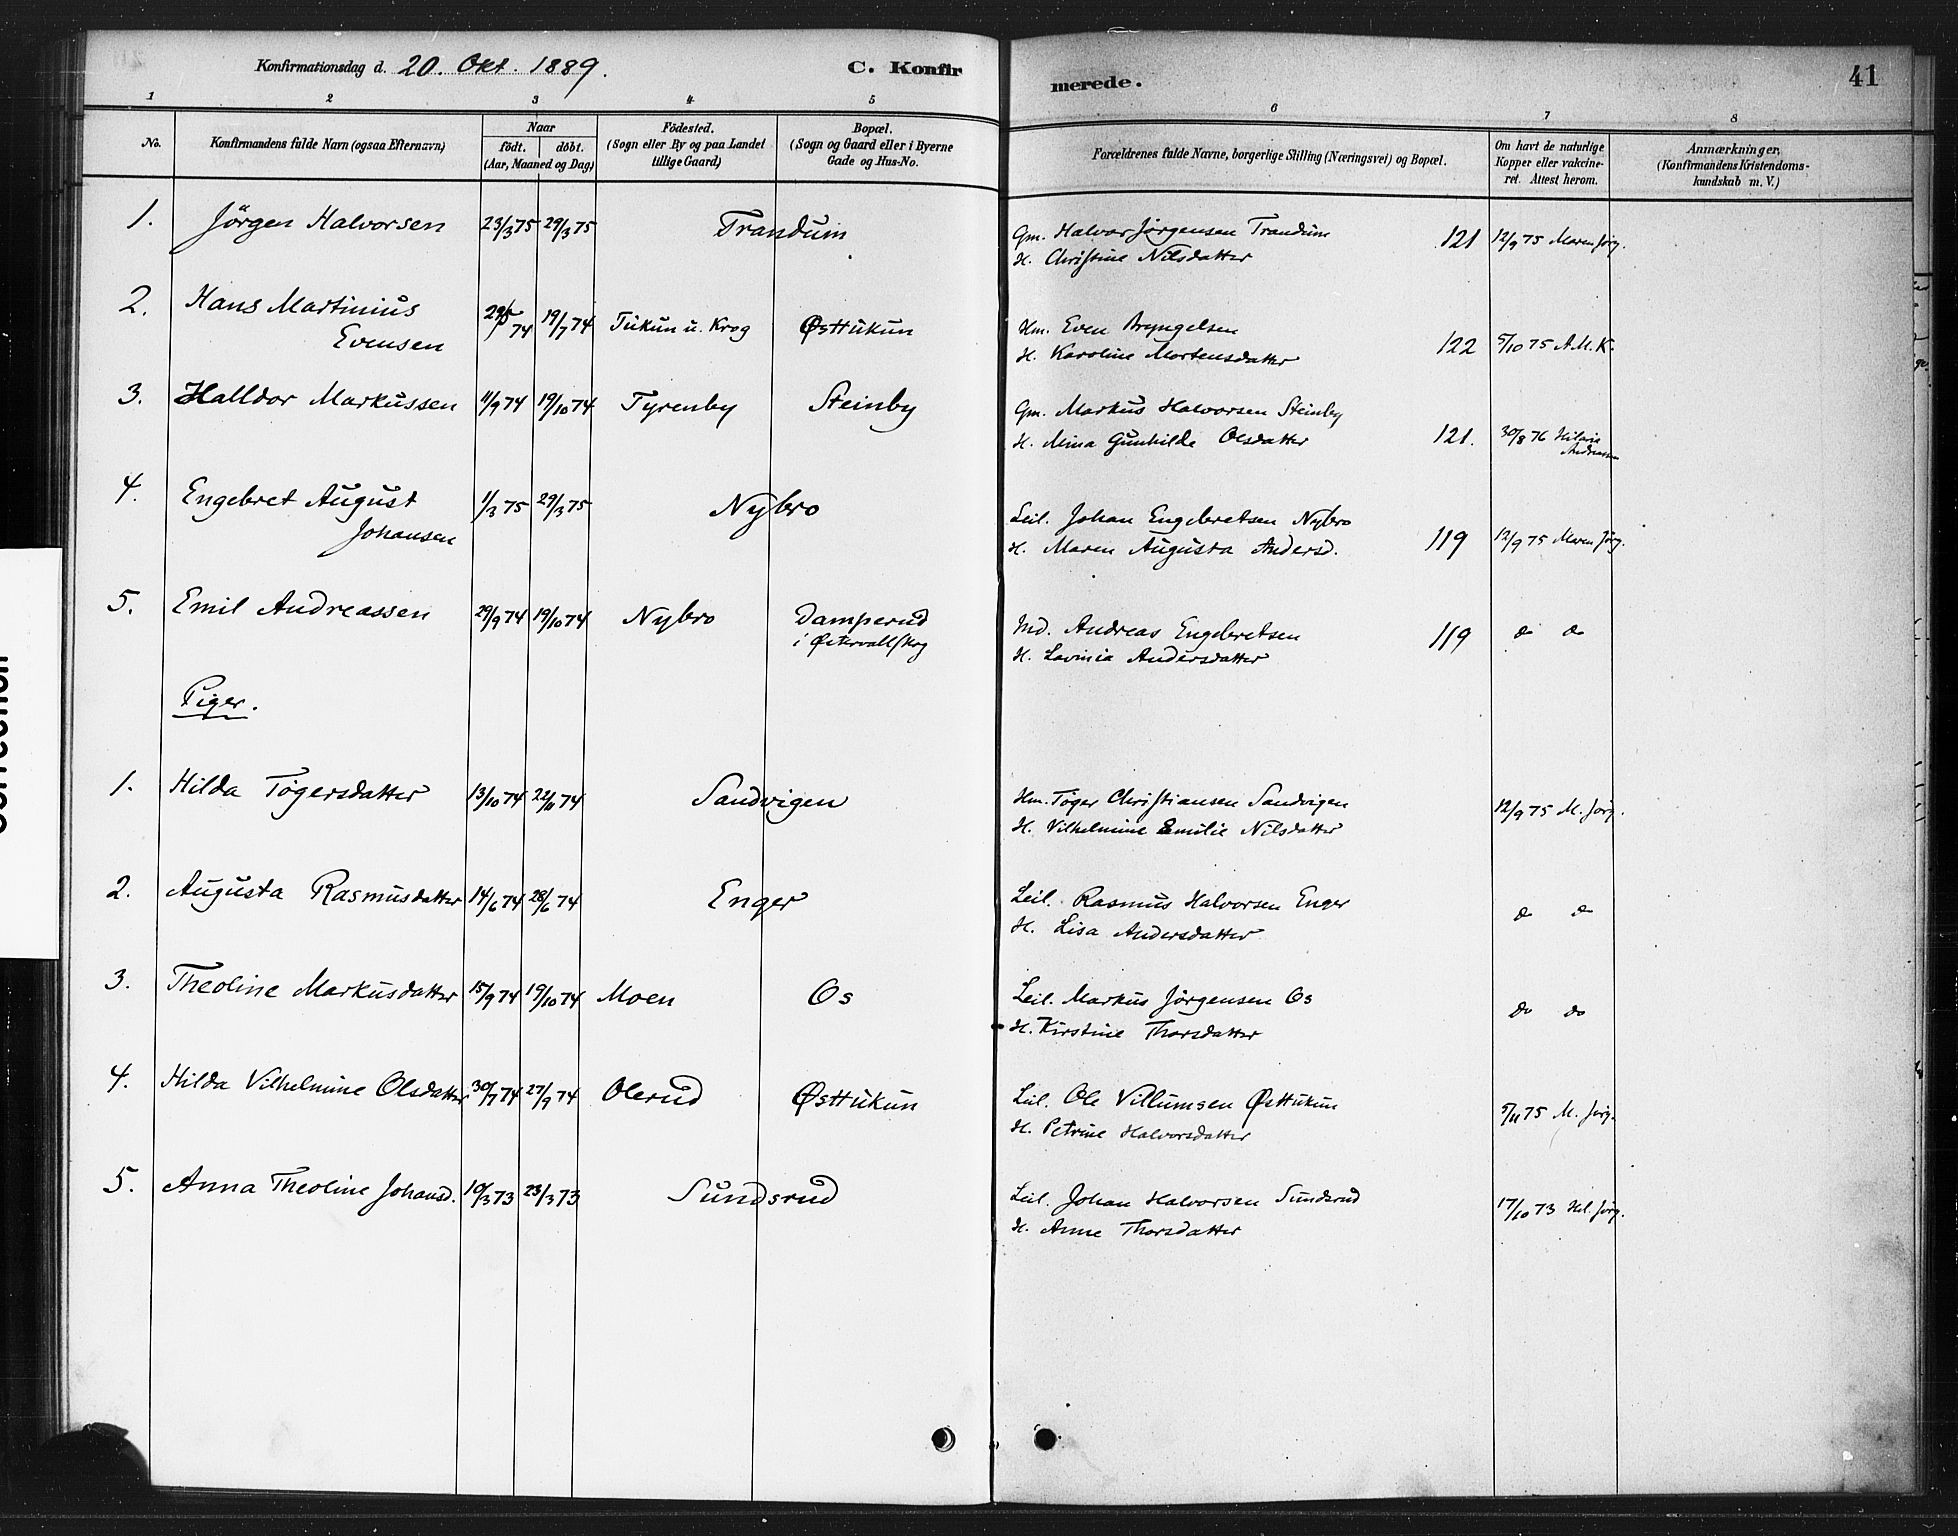 Konfirmationsdag d. 20. Okt. 1889.
C. Konfirmerede.
41
1 2 3 4 5 6 7 8
No.
Konfirmandens fulde Navn (ogsaa Efternavn)
Naar
födt. döbt.
(Aar, Maaned og Dag)
Födested.
(Sogn eller By og paa Landet
tillige Gaard)
Bopæl.
(Sogn og Gaard eller i Byerne
Gade og Hus-No.
Forældrenes fulde Navne, borgerlige Stilling (Næringsvei) og Bopæl.
Om havt de naturlige
Kopper eller vakcine-
ret. Attest herom.
Anmærkninger,
(Konfirmandens Kristendoms-
kundskab m. V.)
1. Jörgen Halvorsen 23/3 75 29/3 75 Trandum Gm. Halvor Jörgensen Trandum 121 12/9 75 Maren Jörg.
H. Christine Nilsdatter
2. Hans Martinius 74 19/7 74 Tukun u. Krog Østtukun Hm. Even Bryngelsen
Evensen H. Karoline Mortensdatter 122 5/10 75 A.M.K.
3. Halldor Markussen 11/9 74 19/10 74 Tyrenby Steinby Gm. Markus Halvorsen Steinby
H. Mina Gunhilde Olsdatter 121. 30/8 76 Hilarie
Andreassen
4. Engebret August 1/3 75 29/3 75 Nybro Leil. Johan Engebretsen Nybro
Johansen H. Maren Augusta Andersd. 119 12/9 75 Maren Jörg.
5. Emil Andreassen 29/9 74 19/10 74 Nybro Damperud Md. Andreas Engebretsen 119 do do
i Østervallskog H. Lavinia Andersdatter
Piger.
1. Hilda Tögersdatter 13/10 74 22/11 74 Sandvigen Hm. Töger Christiansen Sandvigen 12/9 75 M. Jörg.
H. Vilhelmine Emilie Nilsdatter
2. Augusta Rasmusdatter 14/6 74 28/6 74 Enger Leil. Rasmus Halvorsen Enger do do
H. Lisa Andersdatter
3. Theoline Markusdatter 15/9 74 19/10 74 Moen Os Leil. Markus Jörgensen Os do do
H. Kirstine Thorsdatter
4. Hilda Vilhelmine Olsdatter 30/7 74 27/9 74 Olerud Østtukun Leil. Ole Villumsen Østtukun 5/11 75 M. Jörg.
H. Petrine Halvorsdatter
5. Anna Theoline Johansd. 10/3 73 23/3 73 Sundsrud Leil. Johan Halvorsen Sundsrud 17/10 73 Hel. Jörg.
H. Anne Thorsdatter